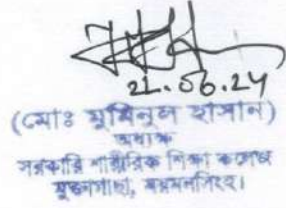 21.06.24
(মোঃ মুমিনুল হাসান)
অধ্যক্ষ
সরকারি শারীরিক শিক্ষা কলেজ
ময়মনসিংহ।